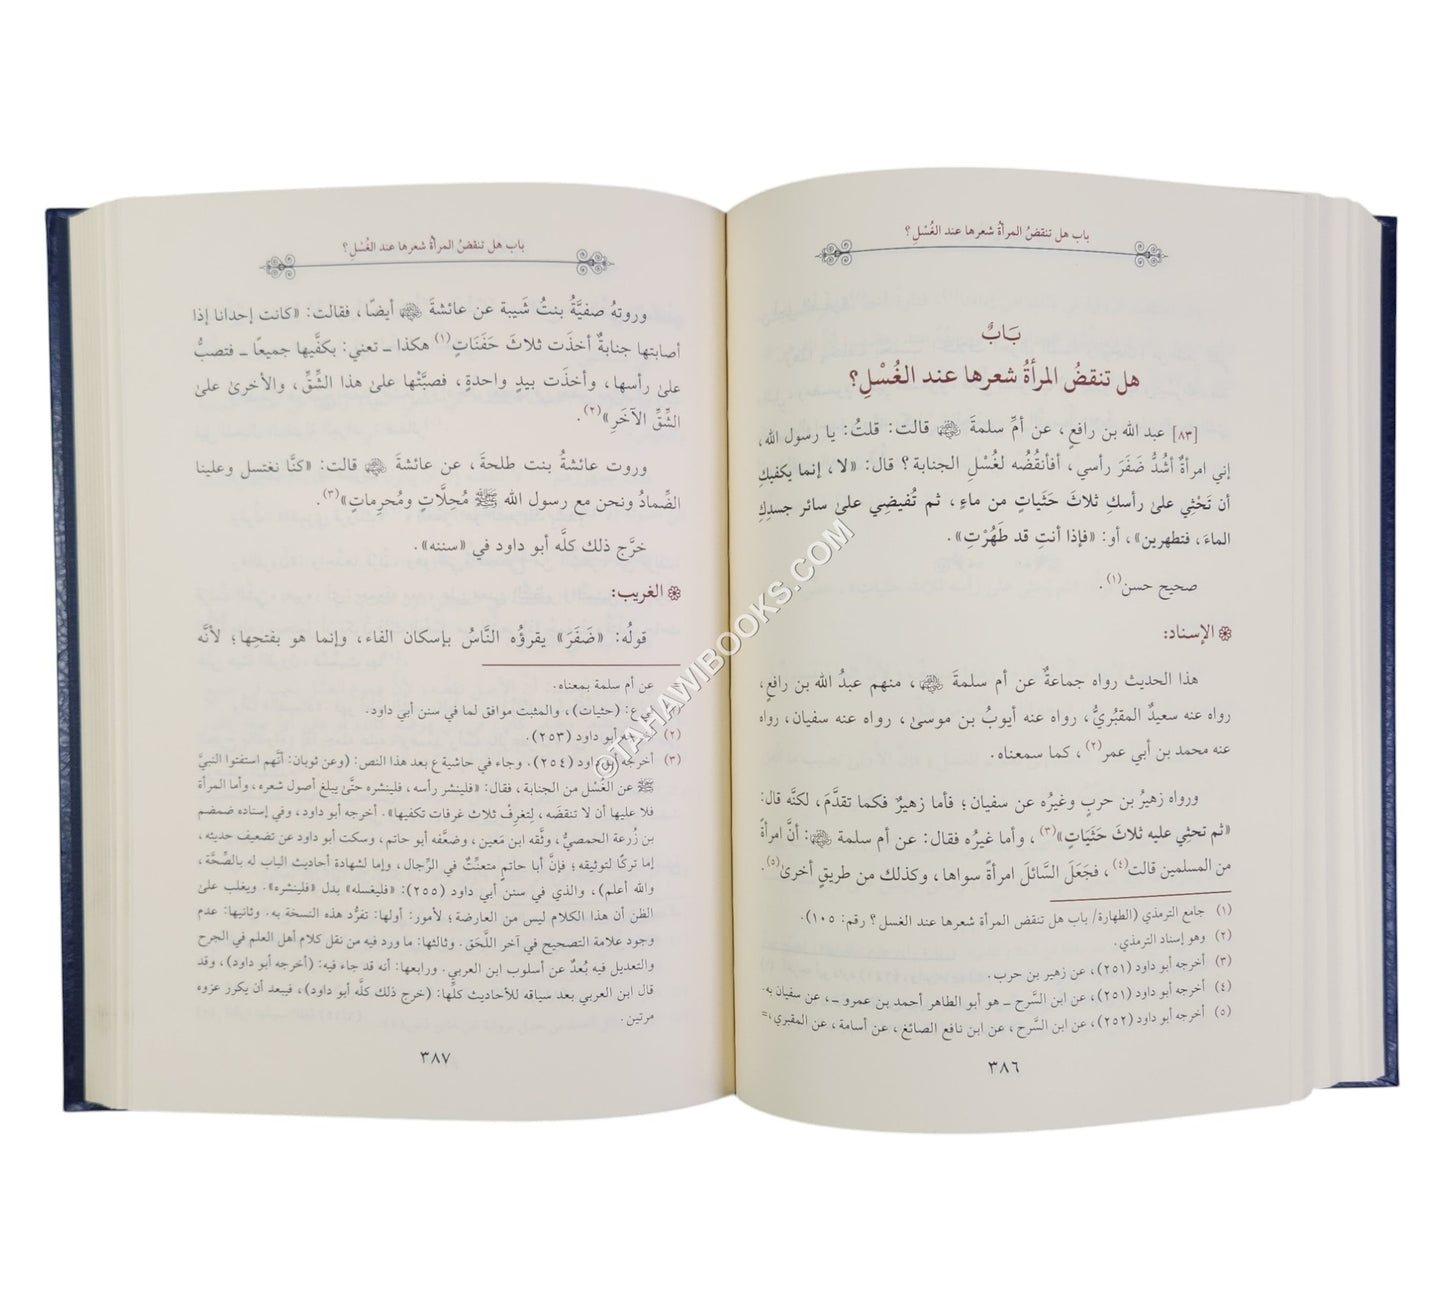 باب هل تنقضُ المرأةُ شعرها عند الغُسْلِ؟
بَابٌ
هل تنقضُ المرأةُ شعرها عند الغُسْلِ؟
[٨٣] عبد الله بن رافعٍ، عن أمِّ سلمةَ قالت: قلتُ: يا رسول الله،
إني امرأةٌ أشدُّ ضَفَرَ رأسي، أفأنقُضُه لغُسْلِ الجنابة؟ قال: «لا، إنما يكفيكِ
أن تَحْثِي علىٰ رأسكِ ثلاثَ حَثَياتٍ من ماءٍ، ثم تُفيضِي علىٰ سائر جسدِكِ
الماءَ، فتطهرين»، أو: «فإذا أنتِ قد طَهُرْتِ».
صحيح حسن(١).
الإسناد:
هذا الحديث رواه جماعةٌ عن أم سلمةَ، منهم عبدُ الله بن رافعٍ،
رواه عنه سعيدٌ المقبُريُّ، رواه عنه أيوبُ بن موسىٰ، رواه عنه سفيان، رواه
عنه محمد بن أبي عمر(٢)، كما سمعناه.
ورواه زهيرُ بن حربٍ وغيرُه عن سفيان؛ فأما زهيرٌ فكما تقدَّمَ، لكنَّه قال:
«ثم تحثِي عليه ثلاثَ حَثَيَاتٍ»(٣)، وأما غيرُه فقال: عن أم سلمة: أنَّ امرأةً
من المسلمين قالت(٤)، فجَعَلَ السَّائلَ امرأةً سواها، وكذلك من طريقٍ أخرىٰ(٥).
(١) جامع الترمذي (الطهارة/ باب هل تنقض المرأة شعرها عند الغسل؟ رقم: ١٠٥).
(٢) وهو إسناد الترمذي.
(٣) أخرجه أبو داود (٢٥١)، عن زهير بن حرب.
(٤) أخرجه أبو داود (٢٥١)، عن ابن السَّرح ـ هو أبو الطاهر أحمد بن عمرو ـ، عن سفيان به.
(٥) أخرجه أبو داود (٢٥٢)، عن ابن السَّرح، عن ابن نافع الصائغ، عن أسامة، عن المقبري،=
٣٨٦
باب هل تنقضُ المرأةُ شعرها عند الغُسْلِ؟
وروتهُ صفيَّةُ بنتُ شَيبة عن عائشةَ أيضًا، فقالت: «كانت إحدانا إذا
أصابتها جنابةٌ أخذَت ثلاثَ حَفَنَاتٍ(١) هكذا ـ تعني: بكفَّيها جميعًا ـ فتصبُّ
علىٰ رأسها، وأخذَت بيدٍ واحدةٍ، فصبَّتْها علىٰ هذا الشِّقِّ، والأخرىٰ علىٰ
الشِّقِّ الآخَرِ»(٢).
وروت عائشةُ بنت طلحةَ، عن عائشةَ قالت: «كنَّا نغتسل وعلينا
الضِّمادُ ونحن مع رسول الله ﷺ مُحِلَّاتٍ ومُحرِماتٍ»(٣).
خرَّج ذلك كلَّه أبو داود في «سننه».
الغريب:
قولُه: «ضَفَرَ» يقرؤُه النَّاسُ بإسكان الفاء، وإنما هو بفتحِها؛ لأنَّه
عن أم سلمة بمعناه.
ع: (حثيات)، والمثبت موافق لما في سنن أبي داود.
(٢) أخرجه أبو داود (٢٥٣).
(٣) أخرجه أبو داود (٢٥٤). وجاء في حاشية ع بعد هذا النص: (وعن ثوبان: أنَّهم استفتوا النبيَّ
ﷺ عن الغُسْل من الجنابة، فقال: «فلينشر رأسه، فلينشره حتَّىٰ يبلغ أصول شعره، وأما المرأة
فلا عليها أن لا تنقضَه، لِتغرِفْ ثلاث غرفات تكفيها». أخرجه أبو داود، وفي إسناده ضمضم
بن زُرعة الحمصيُّ، وثَّقه ابن مَعين، وضعَّفه أبو حاتم، وسكت أبو داود عن تضعيف حديثه،
إما تركًا لتوثيقه؛ فإنَّ أبا حاتمٍ متعنِّتٌ في الرِّجال، وإما لشهادة أحاديث الباب له بالصِّحَّة،
والله أعلم)، والذي في سنن أبي داود (٢٥٥): «فليغسله» بدل «فلينشره». ويغلب علىٰ
الظن أن هذا الكلام ليس من العارضة؛ لأمور: أولها: تفرُّد هذه النسخة به. وثانيها: عدم
وجود علامة التصحيح في آخر اللَّحَق. وثالثها: ما ورد فيه من نقل كلام أهل العلم في الجرح
والتعديل فيه بُعدٌ عن أسلوب ابن العربي. ورابعها: أنه قد جاء فيه: (أخرجه أبو داود)، وقد
قال ابن العربي بعد سياقه للأحاديث كلِّها: (خرج ذلك كلَّه أبو داود)، فيبعد أن يكرر عزوه
مرتين.
٣٨٧
©TAHAWIBOOKS.COM